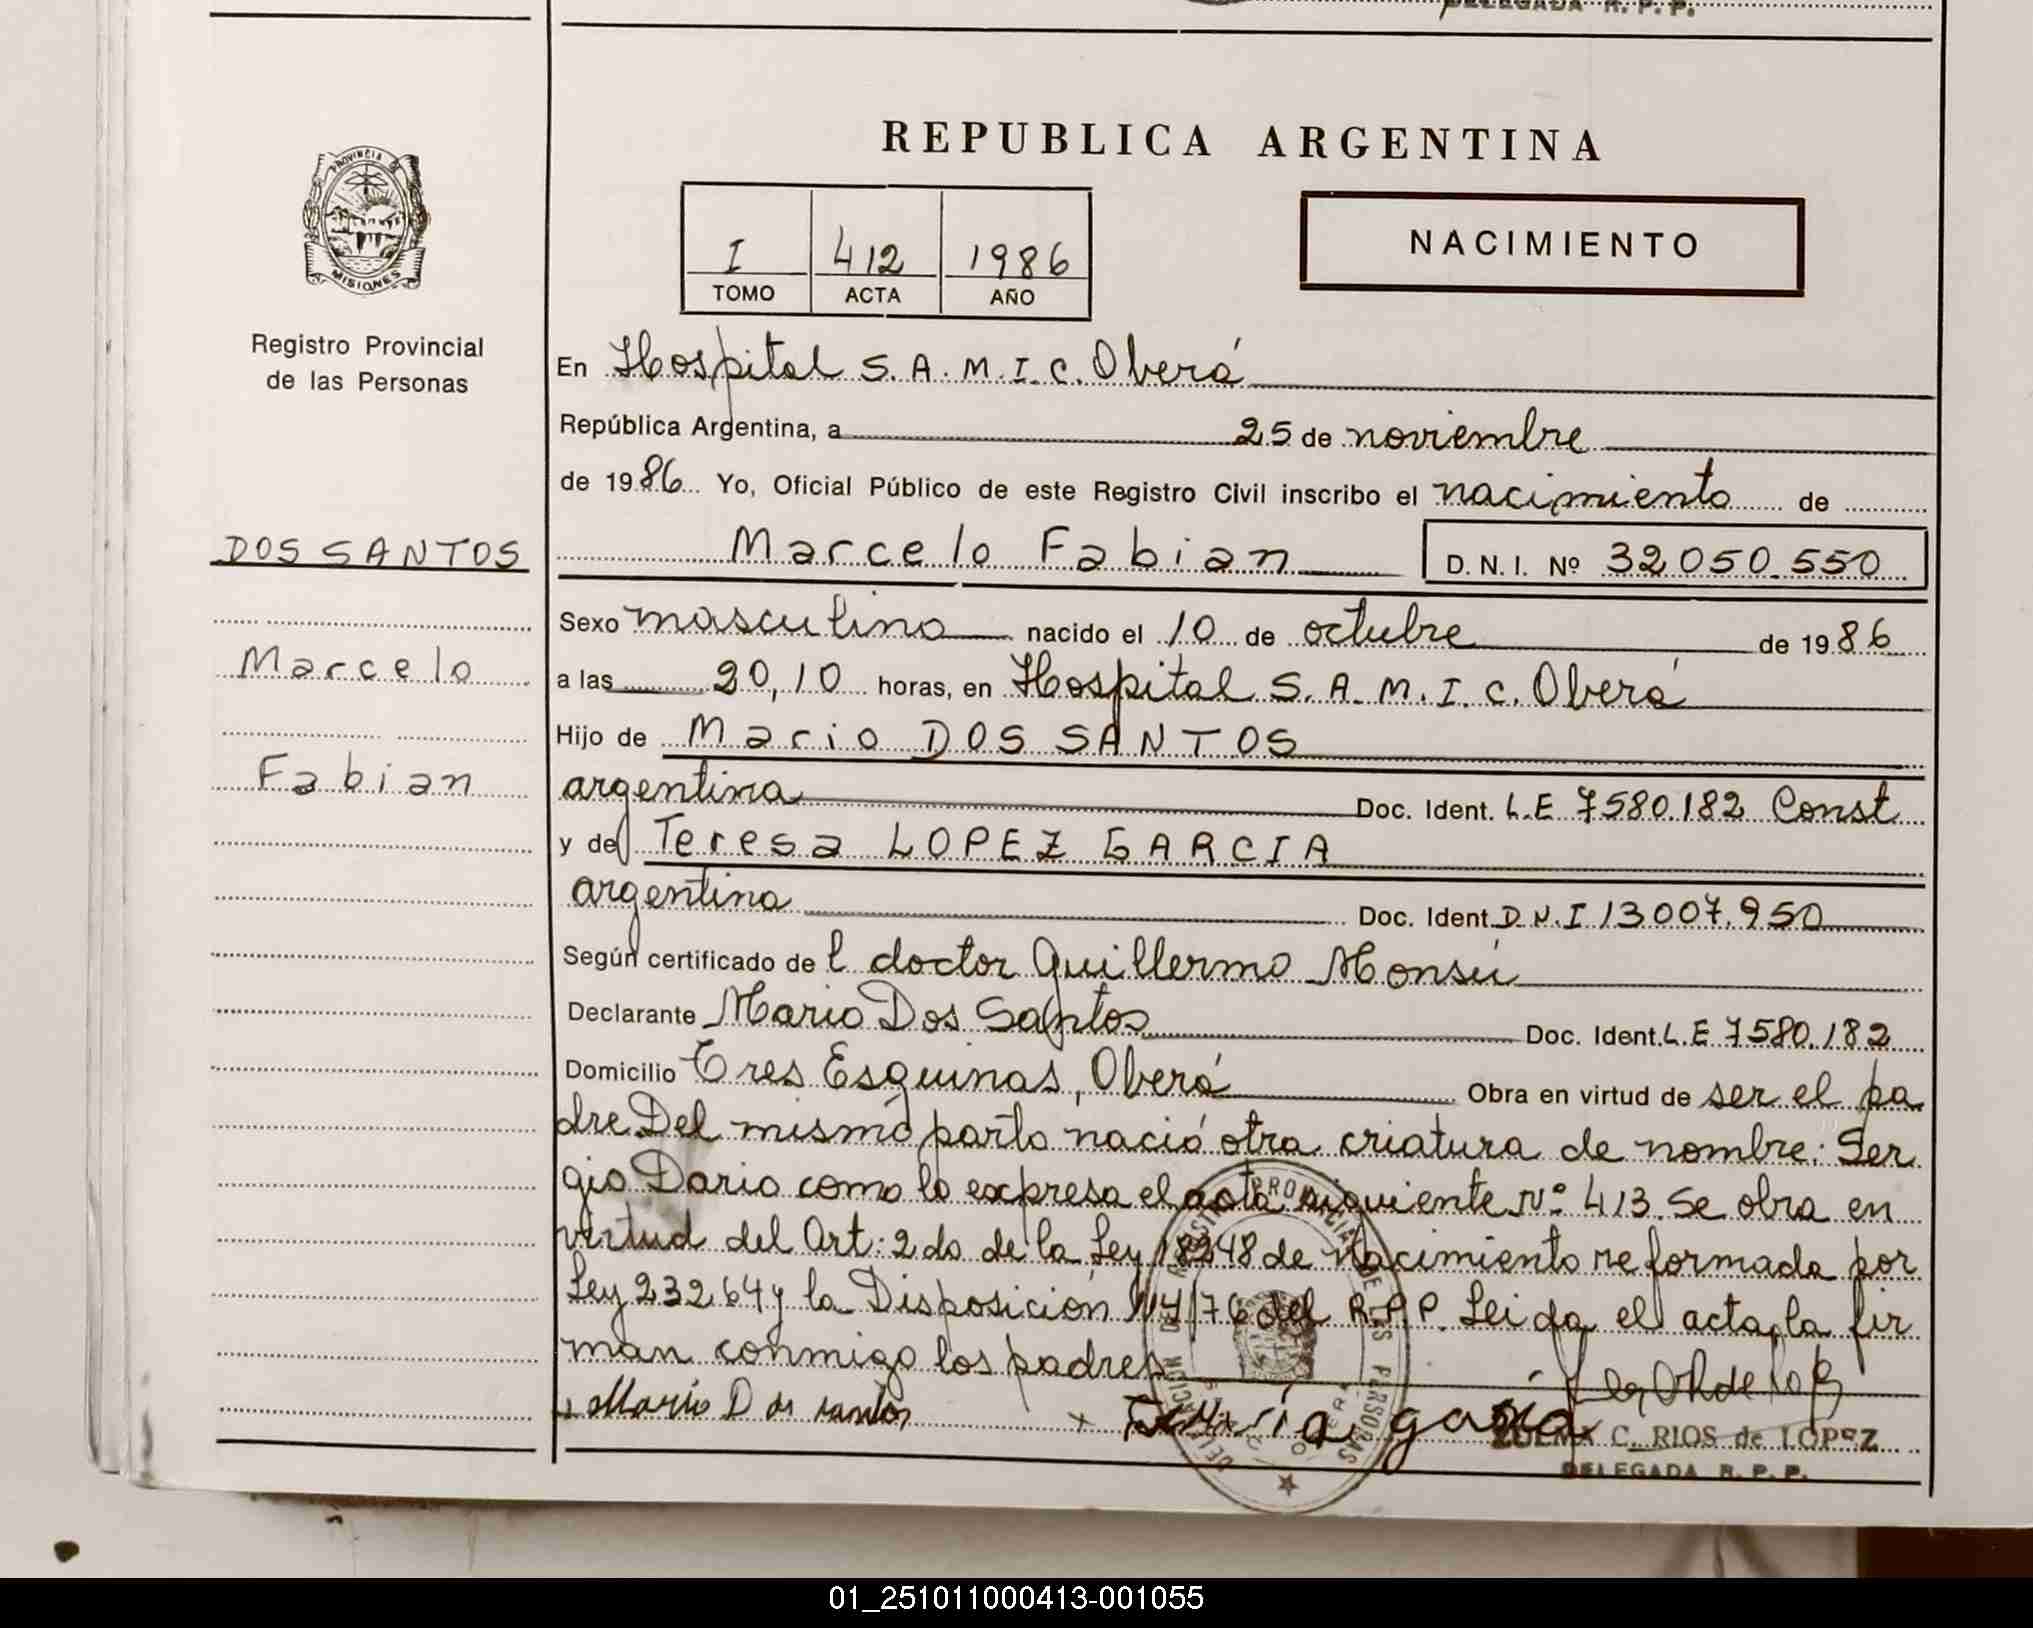 DELEGADA R. P. P.
REPUBLICA ARGENTINA
PROVINCIA DE
MISIONES
Registro Provincial
de las Personas
I 412 1986
TOMO ACTA AÑO
NACIMIENTO
En Hospital S.A.M.I.C. Oberá
República Argentina, a 25 de noviembre
de 1986 Yo, Oficial Público de este Registro Civil inscribo el nacimiento de
DOS SANTOS
Marcelo Fabian D.N.I. Nº 32.050.550
Sexo masculino nacido el 10 de octubre de 1986
Marcelo
a las 20,10 horas, en Hospital S.A.M.I.C. Oberá
Hijo de Mario DOS SANTOS
Fabian
argentina Doc. Ident. L.E 7580.182 Const
y de Teresa LOPEZ GARCIA
argentina Doc. Ident. D.N.I 13.007.950
Según certificado de l doctor Guillermo Monsú
Declarante Mario Dos Santos Doc. Ident. L.E 7580.182
Domicilio Tres Esquinas, Oberá Obra en virtud de ser el pa
dre. Del mismo parto nació otra criatura de nombre: Ser
gio Dario como lo expresa el acta siguiente Nº 413. Se obra en
virtud del Art: 2do de la Ley 18248 de Nacimiento reformada por
Ley 23264 y la Disposición 117/76 del R.P.P. Leida el acta, la fir
man conmigo los padres
Mario Dos santos
garcia
ZULMA C. RIOS de LOPEZ
DELEGADA R. P. P.
01_251011000413-001055